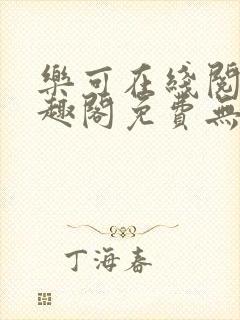 樂可在綫閱
趣閣免費無
丁海春